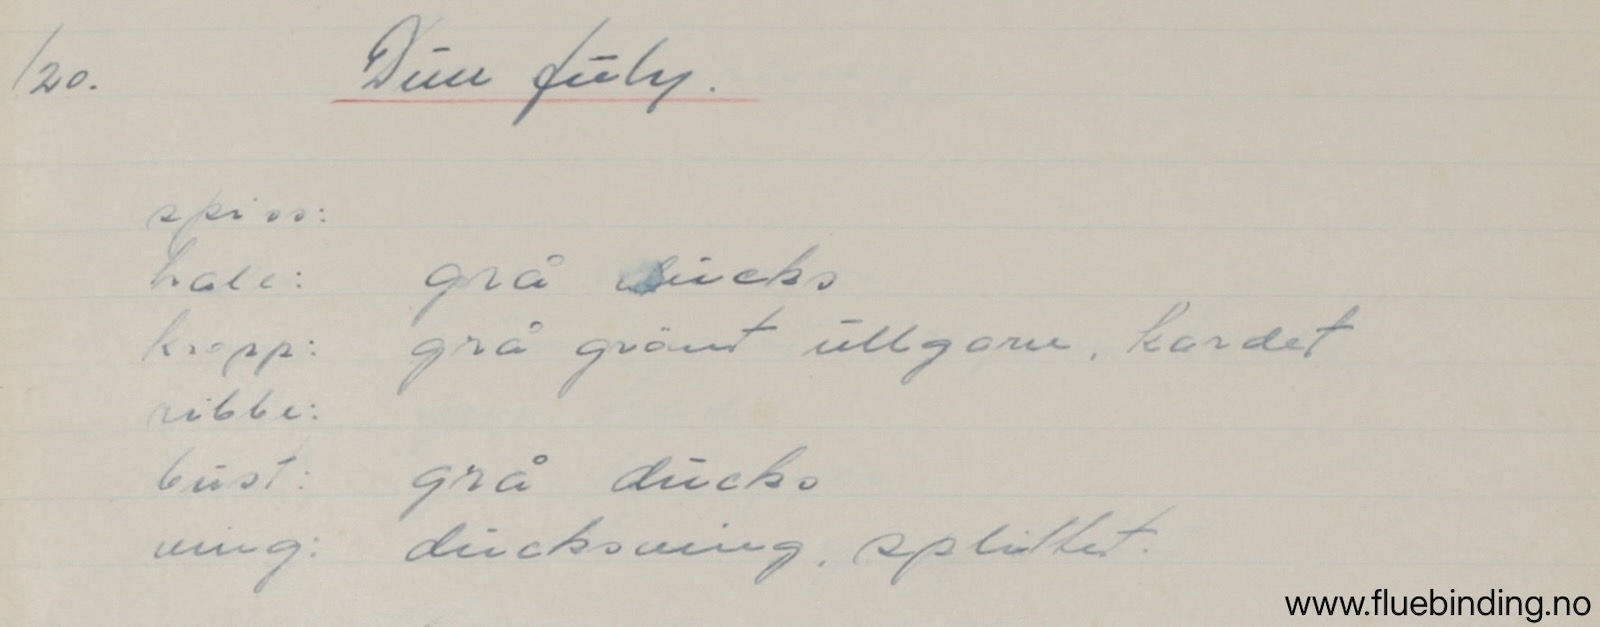 120. Dun July.
spiss:
hale: grå ducks
kropp: grå grönt ullgarn, kardet
ribbe:
bust: grå ducks
ving: ducksving, splittet.
www.fluebinding.no